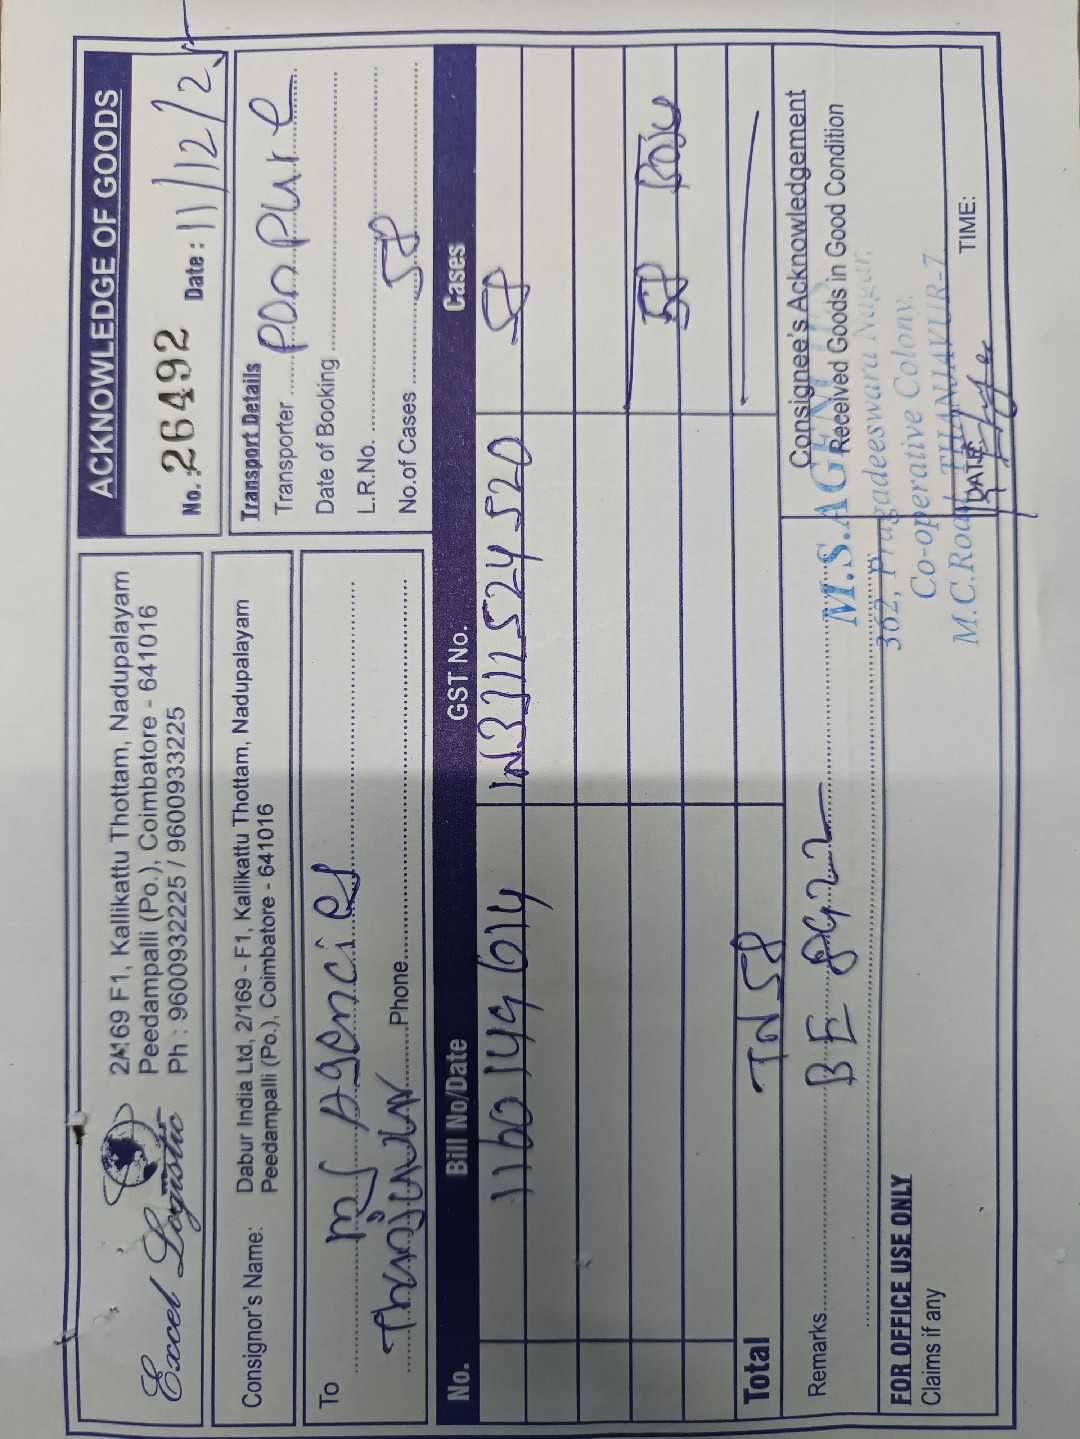 Excel Logistic
2/169 F1, Kallikattu Thottam, Nadupalayam
Peedampalli (Po.), Coimbatore - 641016
Ph : 9600932225 / 9600933225
ACKNOWLEDGE OF GOODS
No. 26492 Date : 11/12/25
Consignor's Name: Dabur India Ltd, 2/169 - F1, Kallikattu Thottam, Nadupalayam
Peedampalli (Po.), Coimbatore - 641016
Transport Details
Transporter
Date of Booking
L.R.No.
No.of Cases 58
To MS Agencies
Phone
No. Bill No/Date GST No. Cases
58
58
Total TN 58
Remarks BE 8922
Consignee's Acknowledgement
Received Goods in Good Condition
M.S.AGENCIES
362, Pragadeeswara Nagar,
Co-operative Colony,
M.C.Road, THANJAVUR-7
FOR OFFICE USE ONLY
Claims if any
DATE TIME: